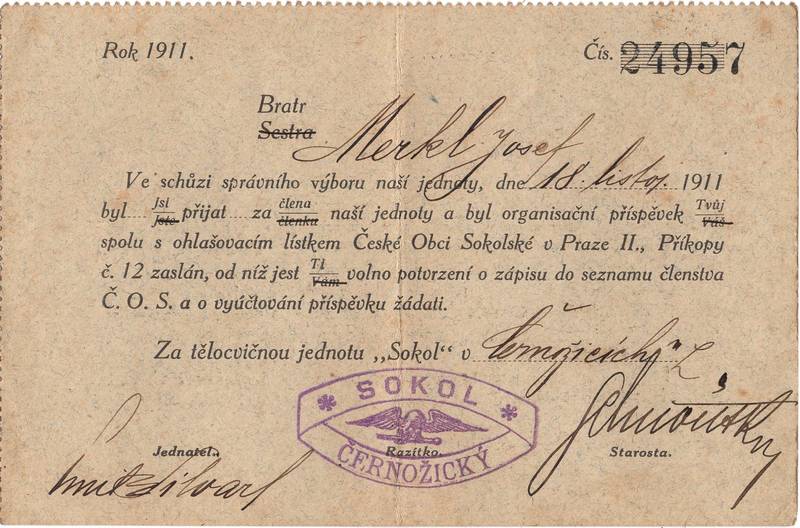 Rok 1911.
Čís. 24957
Bratr
Sestra
Merkl Josef
Ve schůzi správního výboru naší jednoty, dne 18. listop. 1911
byl jsi jste přijat za člena členku naší jednoty a byl organisační příspěvek Tvůj Váš
spolu s ohlašovacím lístkem České Obci Sokolské v Praze II., Příkopy
č. 12 zaslán, od níž jest Ti Vám volno potvrzení o zápisu do seznamu členstva
Č. O. S. a o vyúčtování příspěvku žádati.
Za tělocvičnou jednotu „Sokol“ v Černožicích
SOKOL
ČERNOŽICKÝ
Jednatel. Razítko. Starosta.